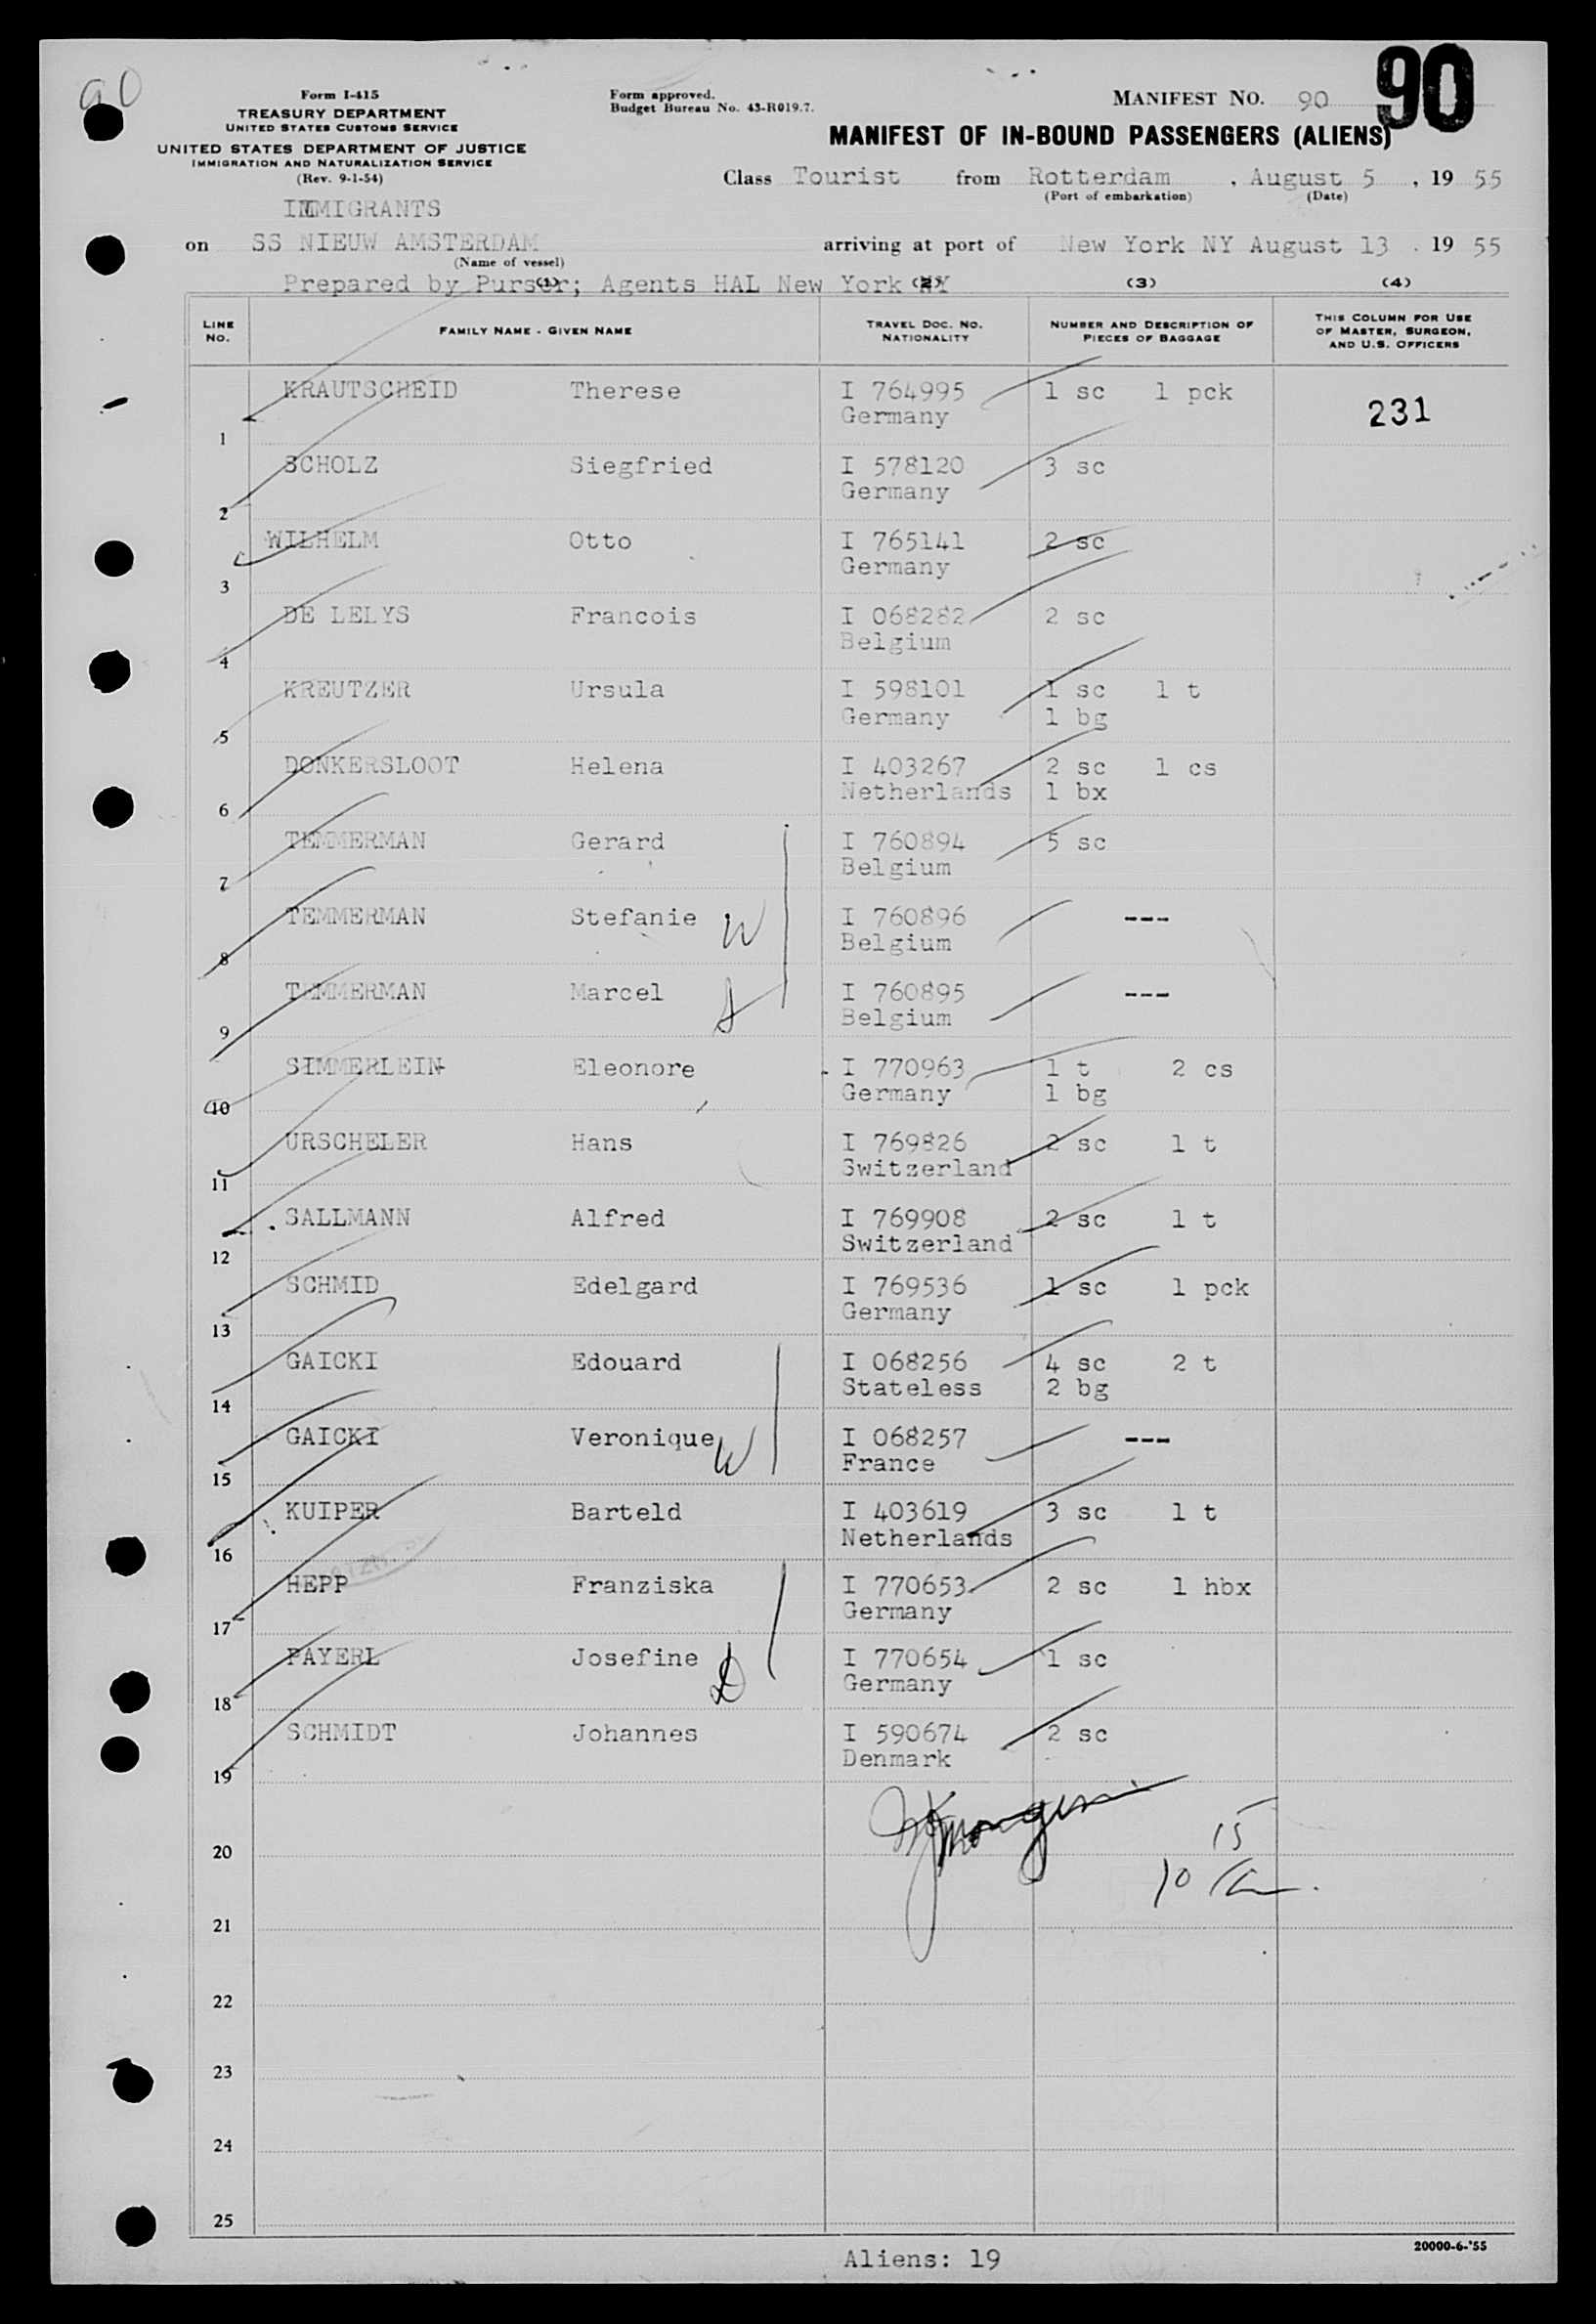 90
90
Form I-415
TREASURY DEPARTMENT
UNITED STATES CUSTOMS SERVICE
UNITED STATES DEPARTMENT OF JUSTICE
IMMIGRATION AND NATURALIZATION SERVICE
(Rev. 9-1-54)
Form approved.
Budget Bureau No. 43-R019.7.
MANIFEST NO. 90
MANIFEST OF IN-BOUND PASSENGERS (ALIENS)
Class Tourist from Rotterdam , August 5 , 19 55
(Port of embarkation) (Date)
IMMIGRANTS
on SS NIEUW AMSTERDAM arriving at port of New York NY August 13 . 19 55
(Name of vessel)
Prepared by Purser; Agents HAL New York NY
(1) (2) (3) (4)
LINE NO. FAMILY NAME - GIVEN NAME TRAVEL DOC. NO. NATIONALITY NUMBER AND DESCRIPTION OF PIECES OF BAGGAGE THIS COLUMN FOR USE OF MASTER, SURGEON, AND U.S. OFFICERS
KRAUTSCHEID Therese I 764995 1 sc 1 pck 231
1 Germany
SCHOLZ Siegfried I 578120 3 sc
2 Germany
WILHELM Otto I 765141 2 sc
3 Germany
DE LELYS Francois I 068282 2 sc
4 Belgium
KREUTZER Ursula I 598101 1 sc 1 t
5 Germany 1 bg
DONKERSLOOT Helena I 403267 2 sc 1 cs
6 Netherlands 1 bx
TEMMERMAN Gerard I 760894 5 sc
7 Belgium
TEMMERMAN Stefanie W I 760896 ---
8 Belgium
TEMMERMAN Marcel I 760895 ---
9 Belgium
SIMMERLEIN Eleonore I 770963 1 t 2 cs
10 Germany 1 bg
URSCHELER Hans I 769826 2 sc 1 t
11 Switzerland
SALLMANN Alfred I 769908 2 sc 1 t
12 Switzerland
SCHMID Edelgard I 769536 1 sc 1 pck
13 Germany
GAICKI Edouard I 068256 4 sc 2 t
14 Stateless 2 bg
GAICKI Veronique W I 068257 ---
15 France
KUIPER Barteld I 403619 3 sc 1 t
16 Netherlands
HEPP Franziska I 770653 2 sc 1 hbx
17 Germany
PAYERL Josefine D I 770654 1 sc
18 Germany
SCHMIDT Johannes I 590674 2 sc
19 Denmark
15
20
10
21
22
23
24
25
Aliens: 19
20000-6-'55